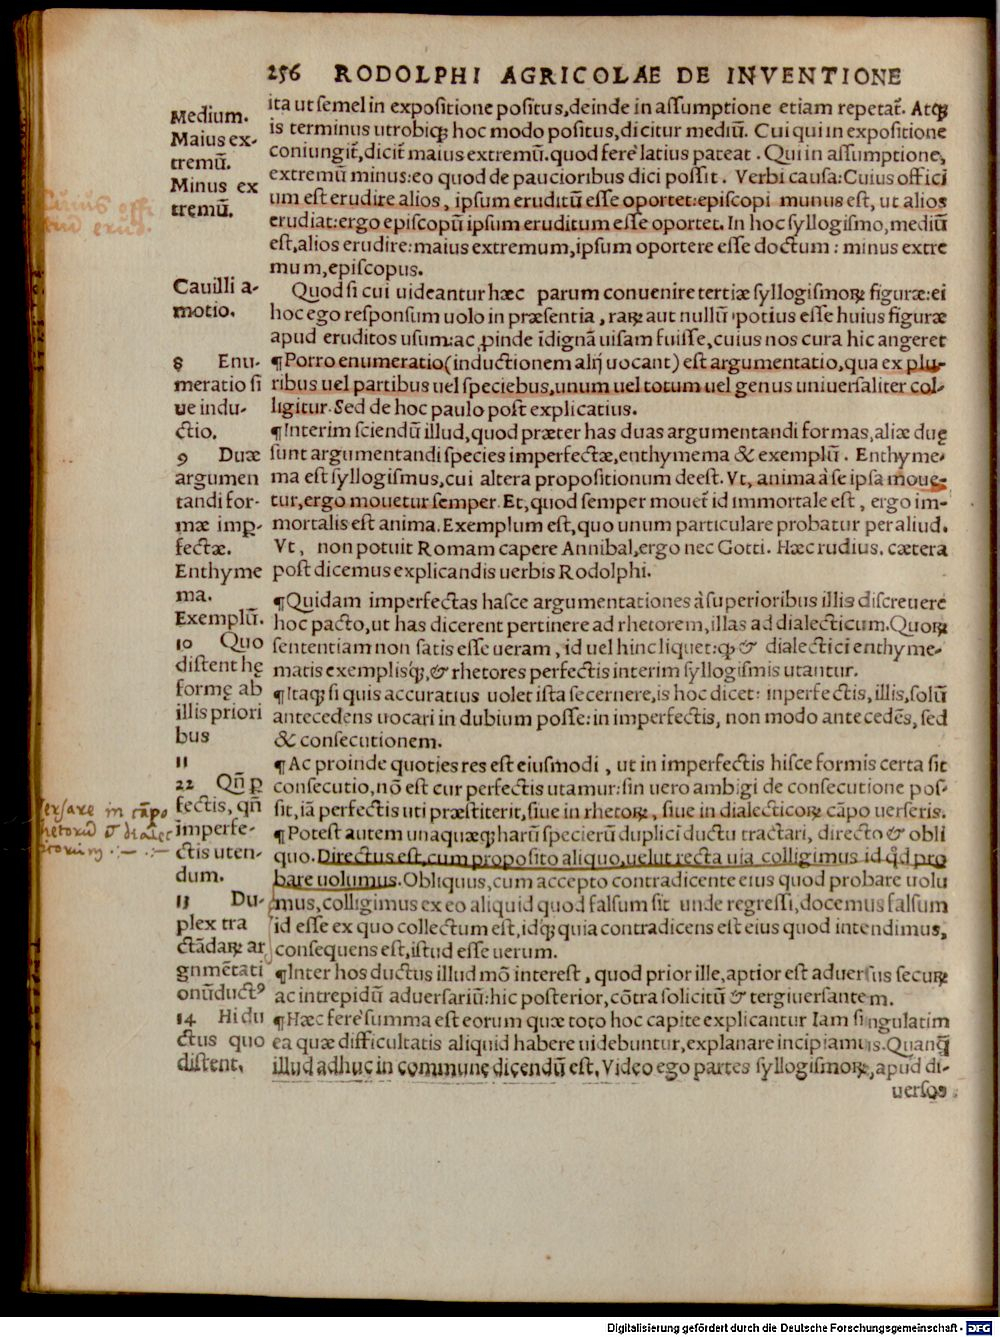 256 RODOLPHI AGRICOLAE DE INVENTIONE
Medium.
Maius ex-
tremũ.
Minus ex
tremũ.
Cavilli a-
motio.
8 Enu-
meratio si
ve indu-
ctio.
9 Duæ
argumen
tandi for-
mæ imp̱-
fectæ.
Enthyme
ma.
Exemplũ.
10 Quo
distent hę
formę ab
illis priori
bus
11
22 Qñ ꝑ
fectis, qñ
imperfe-
ctis uten-
dum.
13 Du-
plex tra
ctãdaꝝ ar
gnmẽtati
onũductꝰ
14 Hi du
ctus quo
distent.
ita ut semel in expositione positus, deinde in assumptione etiam repetat᷑. Atqꝫ
is terminus utrobiqꝫ hoc modo positus, dicitur mediũ. Cui qui in expositione
coniungit᷑, dicit᷑ maius extremũ. quod ferè latius pateat. Qui in assumptione,
extremũ minus: eo quod de paucioribus dici possit. Verbi causa: Cuius offici
um est erudire alios, ipsum eruditũ esse oportet: episcopi munus est, ut alios
erudiat: ergo episcopũ ipsum eruditum esse oportet. In hoc syllogismo, mediũ
est, alios erudire: maius extremum, ipsum oportere esse doctum: minus extre
mum, episcopus.
Quod si cui uideantur hæc parum conuenire tertiæ syllogismoꝝ figuræ: ei
hoc ego responsum uolo in præsentia, raꝝ aut nullũ potius esse huius figuræ
apud eruditos usum: ac ꝓinde ĩdignã uisam fuisse, cuius nos cura hic angeret
¶ Porro enumeratio (inductionem alij uocant) est argumentatio, qua ex plu-
ribus uel partibus uel speciebus, unum uel totum uel genus uniuersaliter col-
ligitur. Sed de hoc paulo post explicatius.
¶ Interim sciendũ illud, quod præter has duas argumentandi formas, aliæ duę
sunt argumentandi species imperfectæ, enthymema & exemplũ. Enthyme-
ma est syllogismus, cui altera propositionum deest. Vt, anima à se ipsa moue-
tur, ergo mouetur semper. Et, quod semper mouet᷑ id immortale est, ergo im-
mortalis est anima. Exemplum est, quo unum particulare probatur per aliud.
Vt, non potuit Romam capere Annibal, ergo nec Gotti. Hæc rudius. cætera
post dicemus explicandis uerbis Rodolphi.
¶ Quidam imperfectas hasce argumentationes à superioribus illis discreuere
hoc pacto, ut has dicerent pertinere ad rhetorem, illas ad dialecticum. Quoꝝ
sententiam non satis esse ueram, id uel hinc liquet: qꝫ & dialectici enthyme-
matis exemplisq́ꝫ, & rhetores perfectis interim syllogismis utantur.
¶ Itaqꝫ si quis accuratius uolet ista secernere, is hoc dicet: inperfectis, illis, solũ
antecedens uocari in dubium posse: in imperfectis, non modo antecedẽs, sed
& consecutionem.
¶ Ac proinde quoties res est eiusmodi, ut in imperfectis hisce formis certa sit
consecutio, nõ est cur perfectis utamur: sin uero ambigi de consecutione pos-
sit, iã perfectis uti præstiterit, siue in rhetoꝝ, siue in dialecticoꝝ cãpo uerseris.
¶ Potest autem unaquæqꝫ harũ specierũ duplici ductu tractari, directo & obli
quo. Directus est, cum proposito aliquo, uelut recta uia colligimus id qd̃ pro
bare uolumus. Obliquus, cum accepto contradicente eius quod probare uolu
mus, colligimus ex eo aliquid quod falsum sit unde regressi, docemus falsum
id esse ex quo collectum est, idqꝫ quia contradicens est eius quod intendimus,
consequens est, istud esse uerum.
¶ Inter hos ductus illud mõ interest, quod prior ille, aptior est aduersus secuꝝ
ac intrepidũ aduersarium: hic posterior, cõtra solicitũ & tergiuersantem.
¶ Hæc ferè summa est eorum quæ toto hoc capite explicantur Iam singulatim
ea quæ difficultatis aliquid habere uidebuntur, explanare incipiamus. Quanq̃
illud adhuc in commune dicendũ est. Video ego partes syllogismoꝝ, apud di-
uersos
Cuius offi
erud.
versare in cãpo
rhetorũ & dialec
ticorum
Digitalisierung gefördert durch die Deutsche Forschungsgemeinschaft - DFG